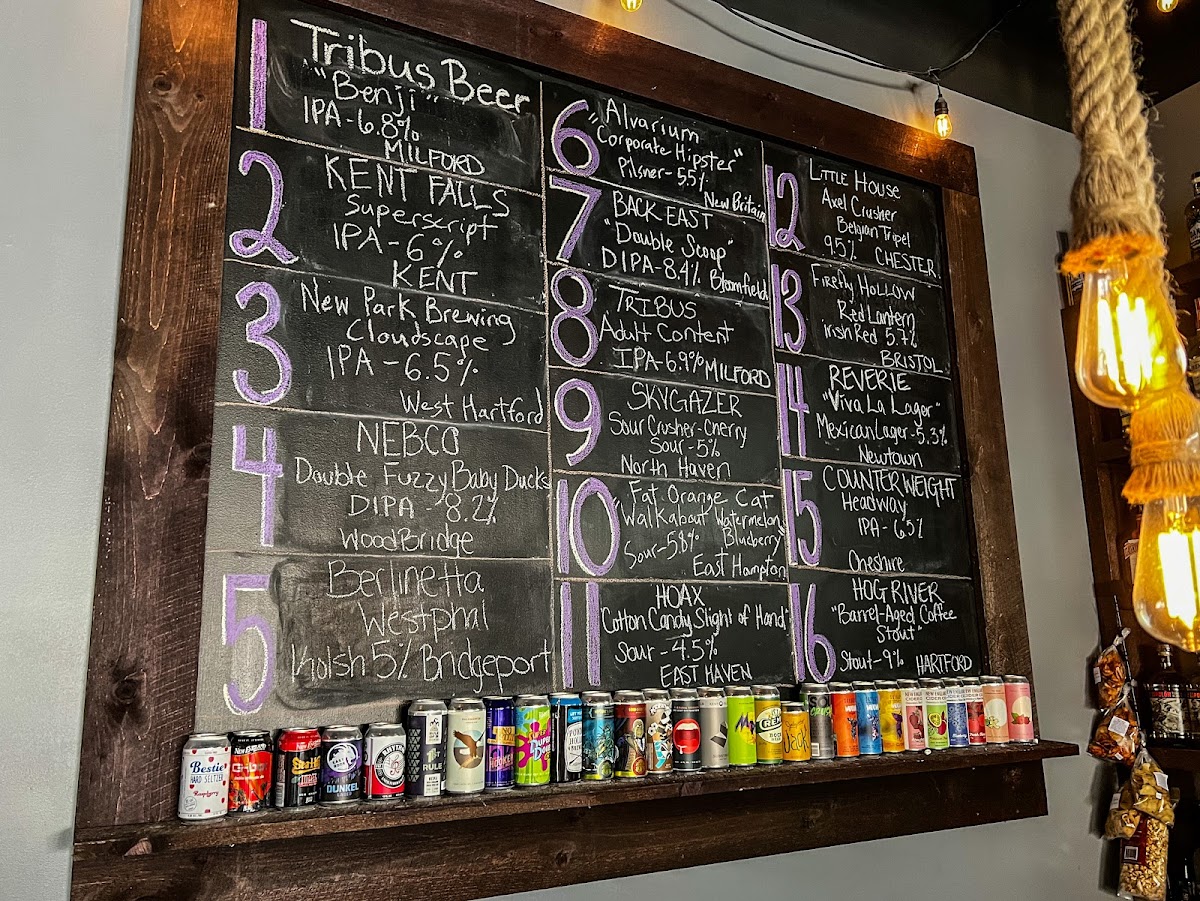 1
Tribus Beer
"Benji"
IPA-6.8%
MILFORD
2
KENT FALLS
Superscript
IPA-6%
KENT
3
New Park Brewing
Cloudscape
IPA-6.5%
West Hartford
4
NEBCO
Double Fuzzy Baby Ducks
DIPA-8.2%
WoodBridge
5
Berlinetta
Westphal
Kolsh 5% Bridgeport
6
Alvarium
"Corporate Hipster"
Pilsner-5.5%
New Britain
7
BACK EAST
"Double Scoop"
DIPA-8.4% Bloomfield
8
TRIBUS
Adult Content
IPA-6.9% MILFORD
9
SKYGAZER
Sour Crusher-Cherry
Sour-5%
North Haven
10
Fat Orange Cat
Walkabout Watermelon
Blueberry"
Sour-5.8%
East Hampton
11
HOAX
"Cotton Candy Slight of Hand"
Sour-4.5%
EAST HAVEN
12
LITTLE HOUSE
Axel Crusher
Belgian Tripel
9.5% CHESTER
13
Firefly HOLLOW
Red Lantern
irish Red 5.7%
BRISTOL
14
REVERIE
"Viva La Lager"
Mexican Lager-5.3%
Newtown
15
COUNTERWEIGHT
Headway
IPA-6.5%
Cheshire
16
HOG RIVER
"Barrel-Aged Coffee
Stout"
Stout-9% HARTFORD
Bestie
HARD SELTZER
Raspberry
DUNKEL
RULE
Jack